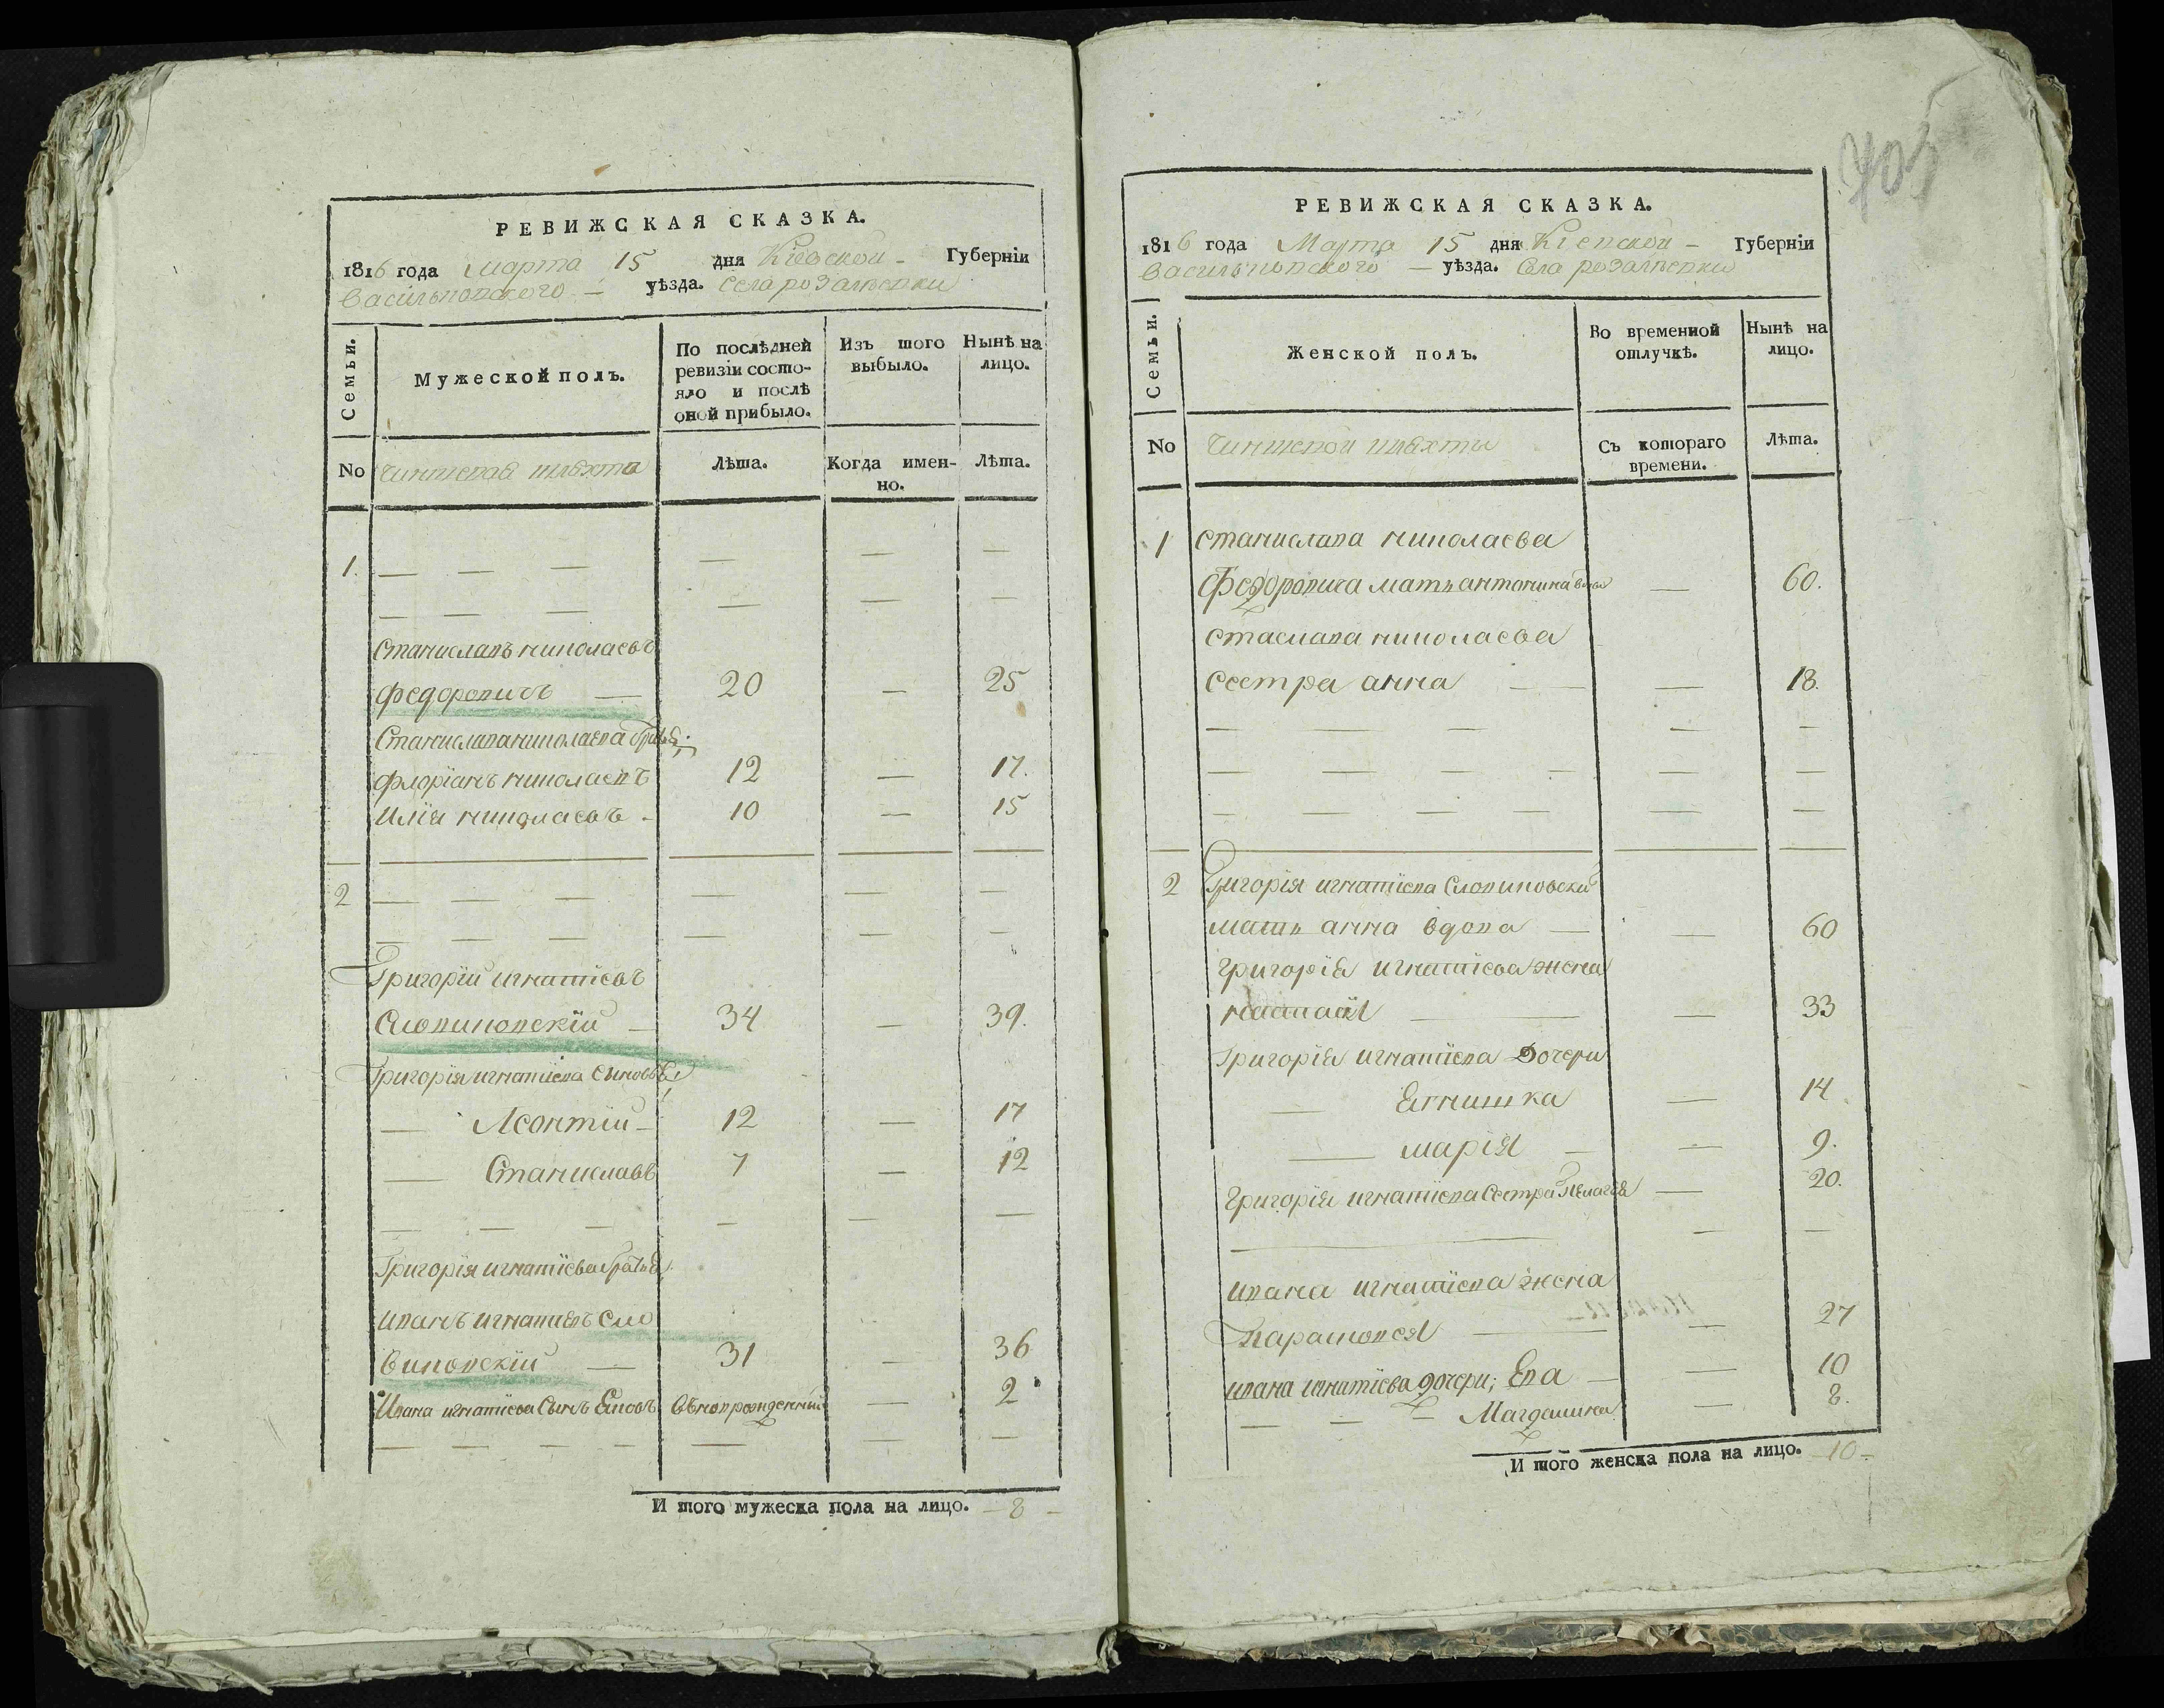 РЕВИЖСКАЯ СКАЗКА.
1816 года Марта 15 дня Кіевской - Губерніи
Васильковского — уѣзда. Села розалѣевки
Семьи.
Мужеской полъ.
По послѣдней ревизіи состо-
яло и послѣ
оной прибыло.
Изъ того выбыло.
Нынѣ на лицо.
No чиншевая шляхта
Лѣта.
Когда имен-
но.
Лѣта.
1.
Станиславъ николаевъ
федоровичъ — 20 — 25
Станислава николаева братья:
флоріанъ николаевъ 12 — 17.
Илія николаевъ - 10 — 15
2
Григорій игнатіевъ
Словиновскій — 34 — 39.
Григорія игнатіева сыновья
— Леонтій - 12 — 17
— Станиславъ 7 — 12
Григорія игнатіева братья
иванъ игнатіевъ сло
виновскій — 31 — 36
Ивана игнатіева сынъ Яковъ вновьрожденный — 2
И того мужеска пола на лицо. - 8 -
703
РЕВИЖСКАЯ СКАЗКА.
1816 года Марта 15 дня Кіевской - Губерніи
Васильковского — уѣзда. Села розалѣевки
Семьи.
Женской полъ.
Во временной
отлучкѣ.
Нынѣ на
лицо.
No Чиншевой шляхты
Съ котораго
времени.
Лѣта.
1 станислава николаева
Федоровича мать антонина вдова — 60.
стаслава николаева
сестра анна — 18.
2 Григорія игнатіева Словиновски
мать анна вдова — 60
григорія игнатіева жена
настасія — 33
Григорія игнатіева Дочери
— Ягнишка — 14
— марія — 9.
Григорія игнатіева Сестра Пелагея — 20.
ивана игнатіева жена
Парасковея — 27
ивана игнатіева дочери; Ева — 10
— — — Магдалина — 8.
И того женска пола на лицо. - 10 -